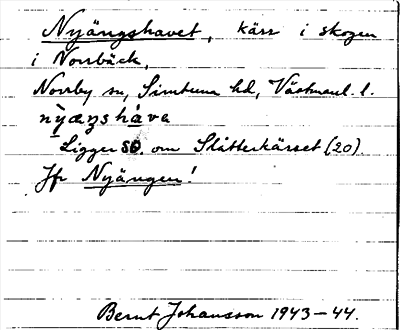 Nyängshavet, kärr i skogen
i Norrbäck,
Norrby sn, Simtuna hd, Västmanl. l.
nỳæŋshàva
Ligger SO. om Slåtterkärret (20).
Jfr Nyängen!
Bernt Johansson 1943-44.